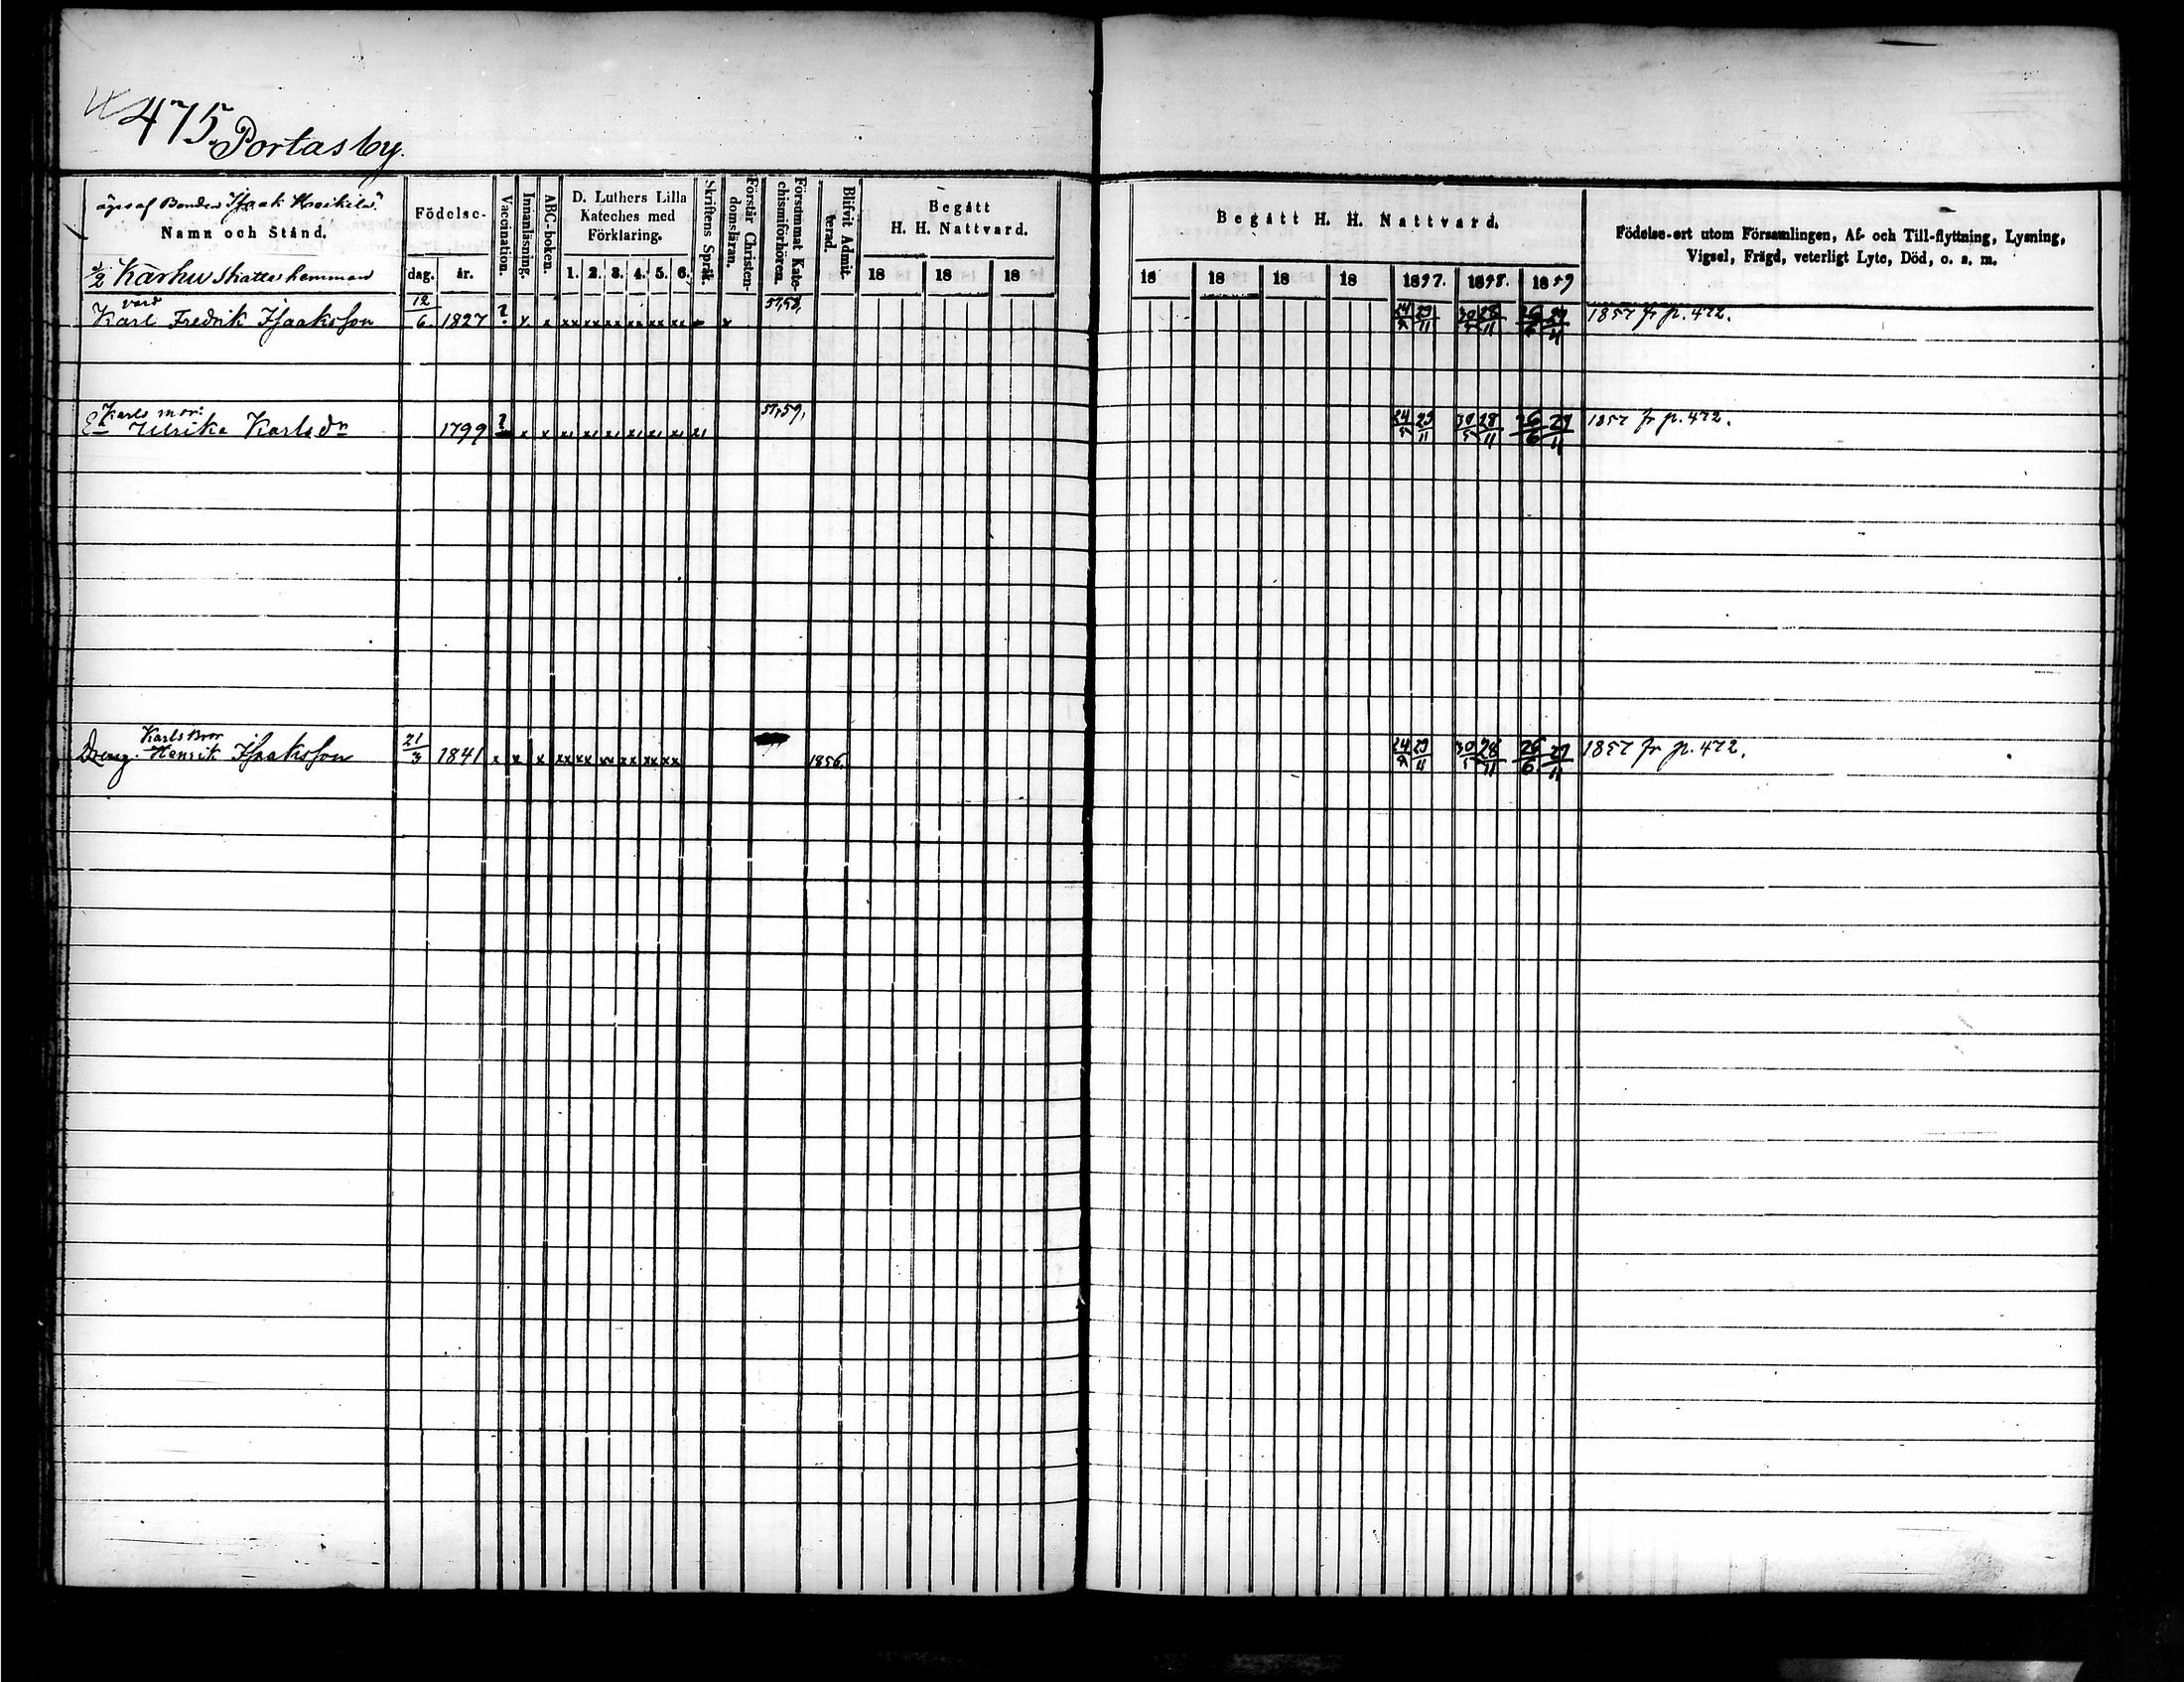 475 Portasby.
äges af Bonden Isaak Heikels
Namn och Stånd.
Födelse-
dag. år.
Vaccination.
Innanläsning.
ABC-boken.
D. Luthers Lilla
Kateches med
Förklaring.
1. 2. 3. 4. 5. 6.
Skriftens Språk.
Förstår Christen-
domsläran.
Försummat Kate-
chismiförhören.
Blifvit Admit-
terad.
Begått
H. H. Nattvard.
18 18 18
Begått H. H. Nattvard.
18 18 18 18 1857. 1858. 1859
Födelse-ort utom Församlingen, Af- och Till-flyttning, Lysning,
Vigsel, Frägd, veterligt Lyte, Död, o. s. m.
1/2 Karhu skatte hemman
Karl Fredrik Isaaksson 12/6 1827 ? x x xx xx xx xx xx xx x 57,58, 24/5 29/11 30/5 28/11 26/6 27/11 1857 fr p. 472.
Karls mor:
Ulrika Karlsdr 1799 ? x x x x x x x x 57,59, 24/5 29/11 30/5 28/11 26/6 27/11 1857 fr p. 472.
Karls Bror
Dreng. Henrik Isaaksson 21/3 1841 x x x xx xx xx xx xx xx 1856. 24/5 29/11 30/5 28/11 26/6 27/11 1857 fr p. 472.